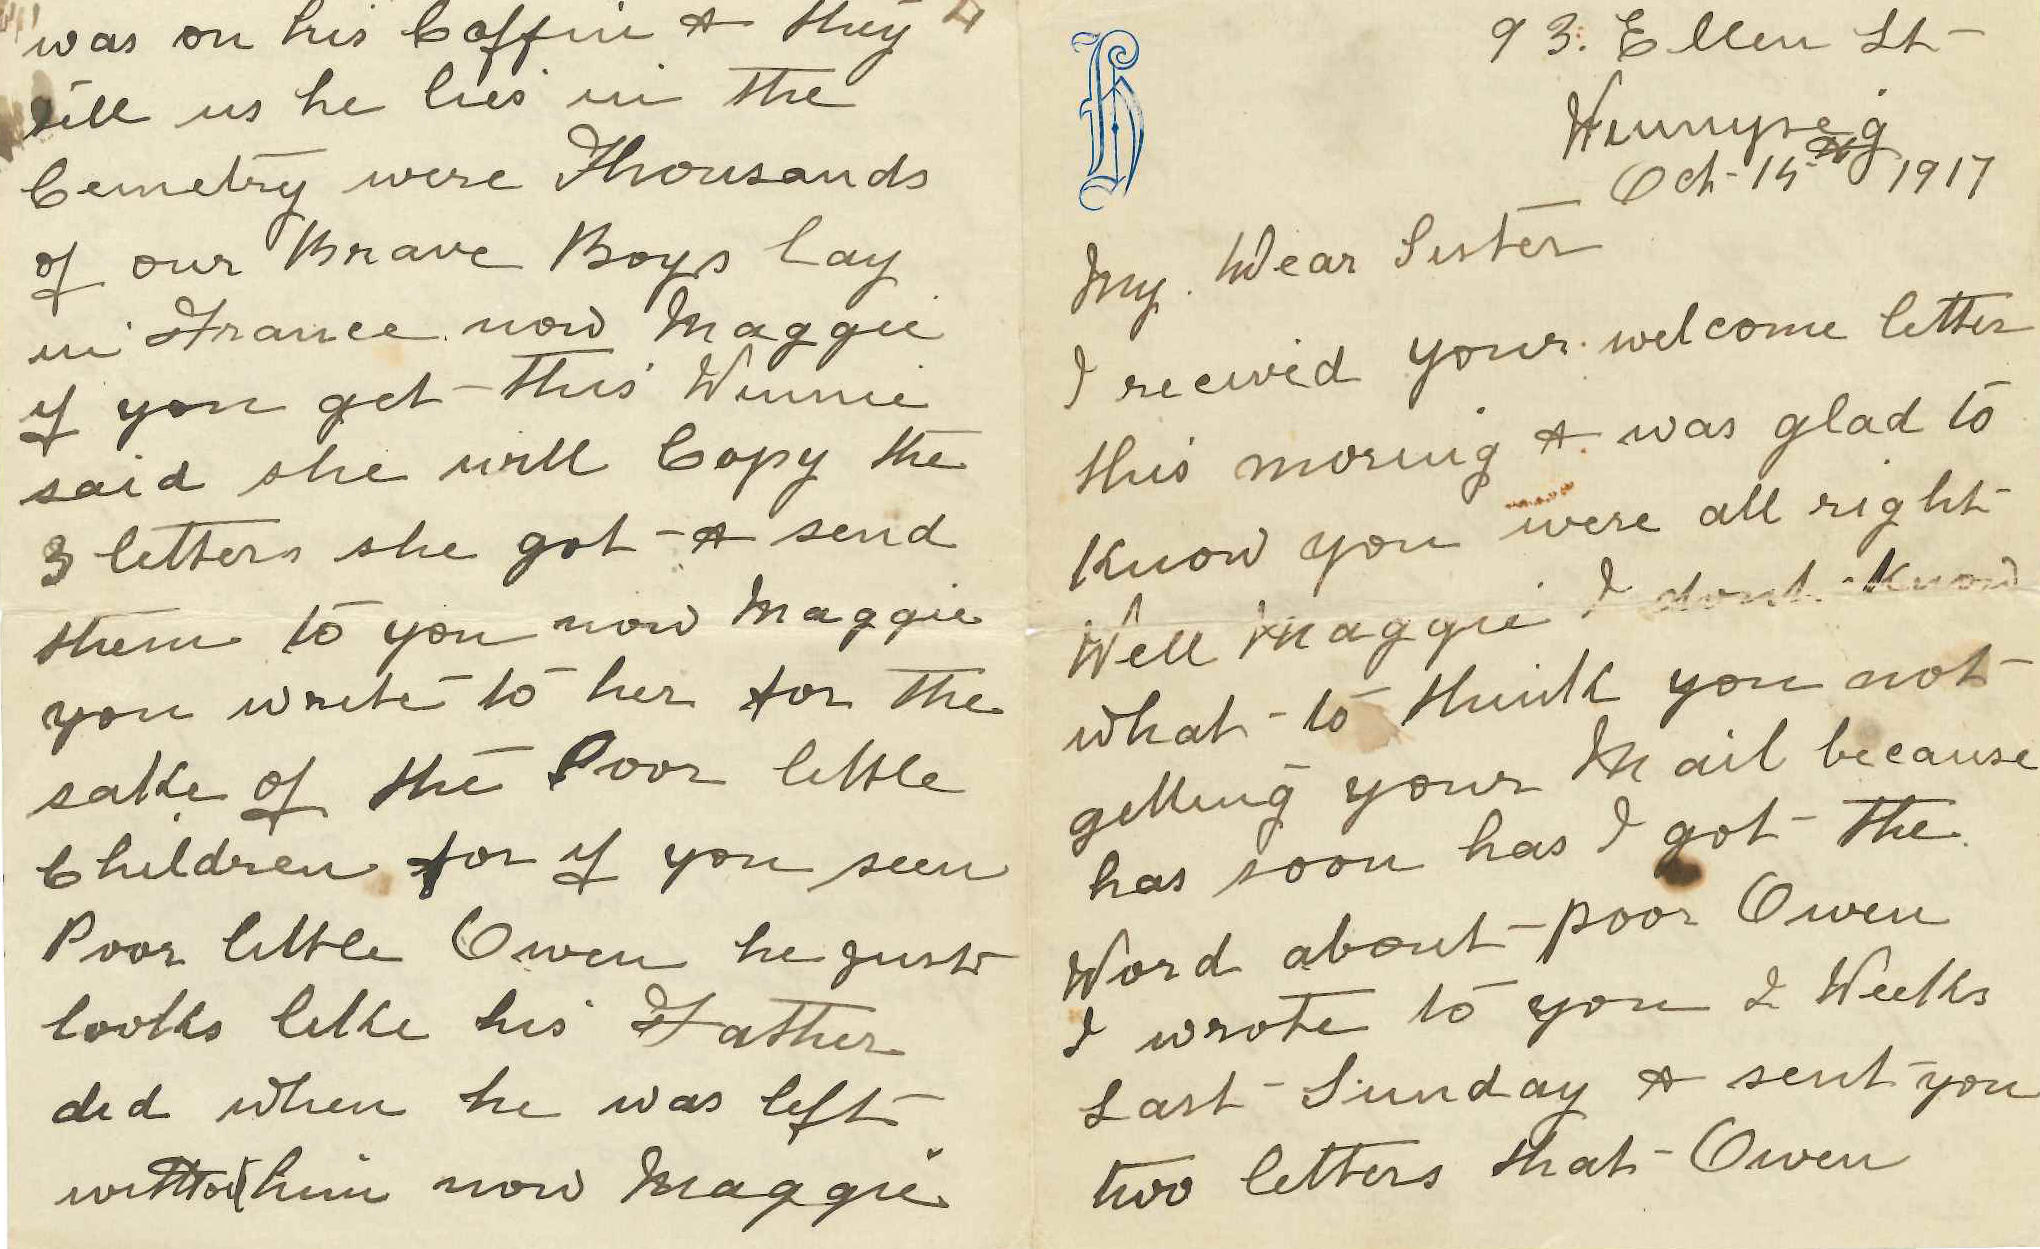 was on his Coffin & they 4
tell us he lies in the
Cemetry were Thousands
of our Brave Boys lay
in France now Maggie
if you get this Winnie
said she will Copy the
3 letters she got & send
them to you now Maggie
you write to her for the
sake of the Poor little
Children for if you seen
Poor little Owen he just
looks like his Father
did when he was left
him now Maggie
93. Ellen St
Winnypeg
Oct-15th 1917
My. Dear Sister
I recivid your welcome letter
this moring & was glad to
Know you were all right
Well Maggie I dont Know
what to think you not
getting your Mail because
has soon has I got the
Word about poor Owen
I wrote to you 2 Weeks
Last Sunday & sent you
two letters that Owen